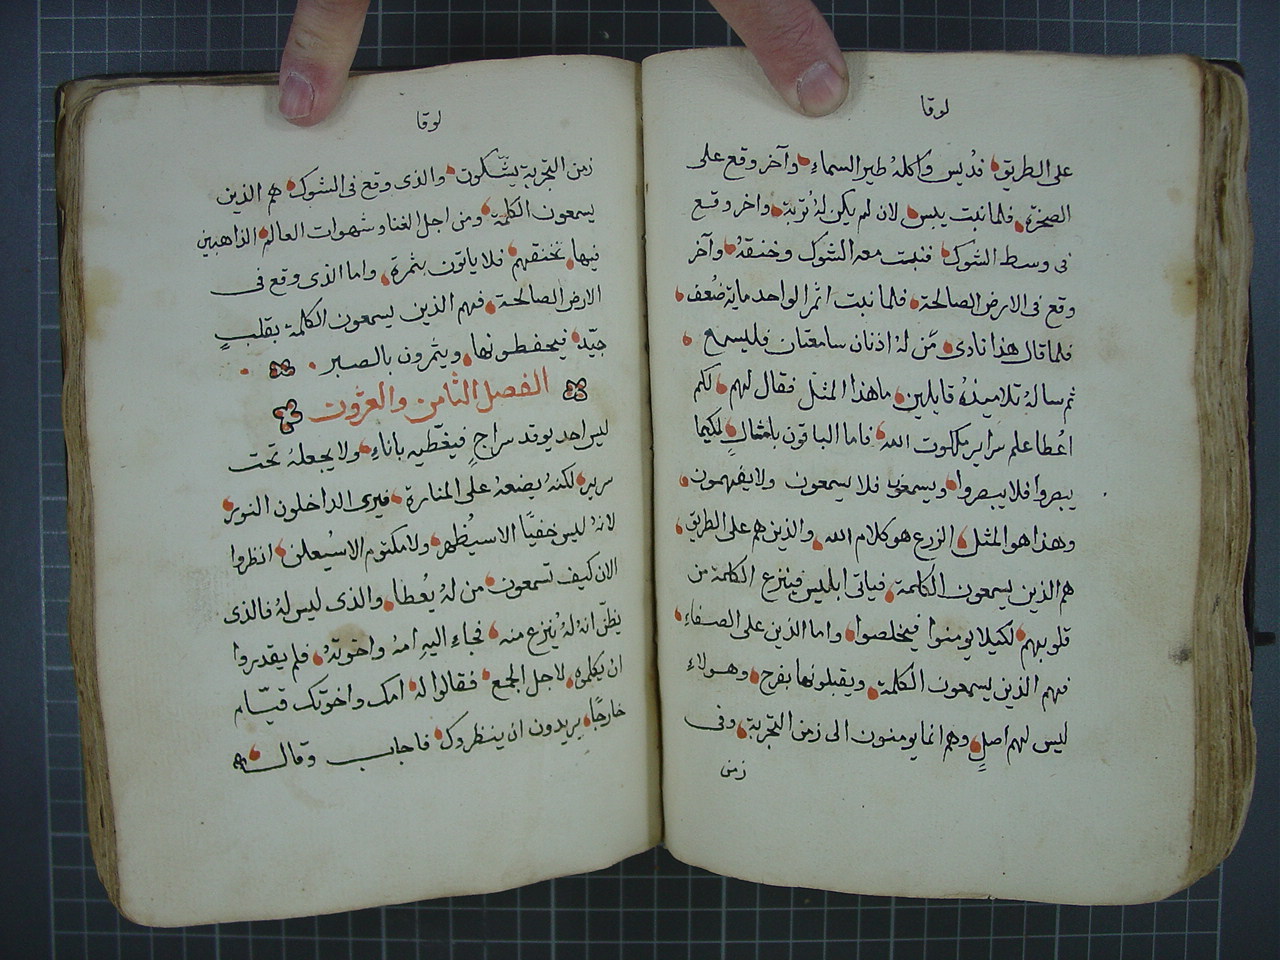 لوقا
على الطريق فديس واكلهُ طير السماء وآخر وقع على
الصخرة فلما نبت يبس لان لم يكن لهُ تربة واخر وقع
فى وسط الشوك فنبت معه الشوك وخنقهُ وآخر
وقع فى الارض الصالحة فلما نبت اثمر الواحد ماية ضُعف
فلما قال هذا نادى مَن لهُ اذنان سامعتان فليسمع
ثم سالهُ تلاميذهُ قايلين ما هذا المثل فقال لهم لكم
اعُطا علم سراير ملكوت الله فاما الباقون بامثالٍ لكيما
يبصروا فلا يبصروا ويسمعون فلا يسمعون ولا يفهمون
وهذا هو المثل الزرع هو كلام الله والذين هم على الطريق
هم الذين يسمعون الكلمة فياتى ابليس فينزع الكلمة من
قلوبهم لكيلا يومنوا فيخلصوا واما الذين على الصفاء
فهم الذين يسمعون الكلمة ويقبلونها بفرح وهولاء
ليس لهم اصلٍ وهم انما يومنون الى زمن التجربة وفى
زمن
لوقا
زمن التجربة يشكون والذى وقع فى الشوك هم الذين
يسمعون الكلمة ومن اجل الغنا وشهوات العالم الذاهبين
فيها تخنقهم فلا ياتون بثمرة واما الذى وقع فى
الارض الصالحة فهم الذين يسمعون الكلمة بقلبٍ
جيّد فيحفظونها ويثمرون بالصبر
الفصل الثامن والعشرون
ليس احد يوقد سراجٍ فيغطّيه باناء ولا يجعلهُ تحت
سرير لكنهُ يضعهُ على المنارة فيرى الداخلون النور
لانهُ ليس خفيًّا الا سيُظهر ولا مكتوم الا سيُعلن انظروا
الان كيف تسمعون من لهُ يعُطا والذى ليس لهُ فالذى
يظنّ انهُ لهُ يُنزع منه فجاء اليهِ امهُ واخوتهُ فلم يقدروا
ان يكلموه لاجل الجمع فقالوا لهُ امك واخوتك قيّام
خارجًا يريدون ان ينظروك فاجاب وقال